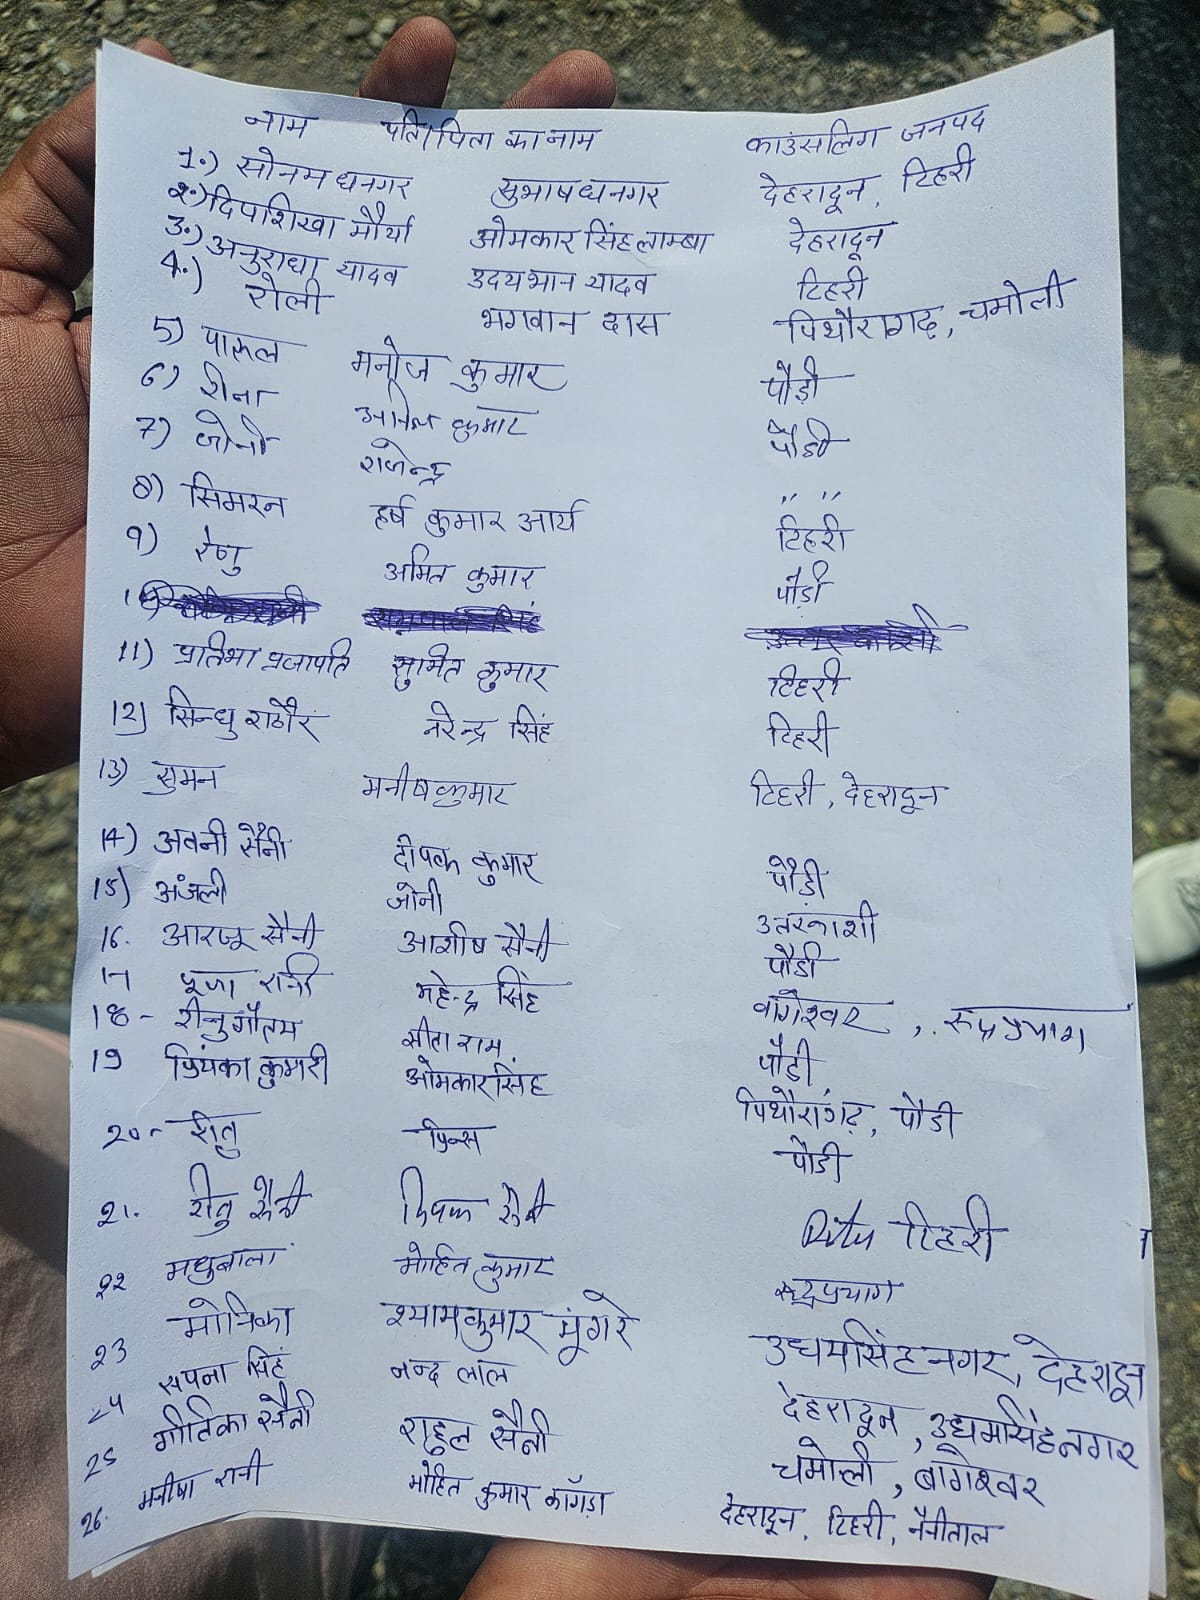 नाम पति/पिता का नाम काउंसलिंग जनपद
1.) सोनम धनगर सुभाष धनगर देहरादून, टिहरी
2.) दिपाशिखा मौर्या ओमकार सिंह लाम्बा देहरादून
3.) अनुराधा यादव उदयभान यादव टिहरी
4.) रोली भगवान दास पिथौरागढ़, चमोली
5) पारूल मनोज कुमार पौड़ी
6) रीना अनिल कुमार पौडी
7) राजेन्द्र " "
8) सिमरन हर्ष कुमार आर्य टिहरी
9) रेणु अमित कुमार पौड़ी
11) प्रतिभा प्रजापति सुमित कुमार टिहरी
12) सिन्धु राठौर नरेन्द्र सिंह टिहरी
13) सुमन मनीष कुमार टिहरी, देहरादून
14) अवनी सैनी दीपक कुमार पौड़ी
15) अंजली जोनी उतरकाशी
16. आरजू सैनी आशीष सैनी पौडी
17 पूजा रानी महेन्द्र सिंह बागेश्वर, रूद्रप्रयाग
18- रीनु गौतम सीता राम पौडी
19 प्रियंका कुमारी ओमकार सिंह पिथौरागढ़, पौडी
20- रीतु प्रिन्स पौडी
21. रीतु सैनी दिपक सैनी Ritu टिहरी
22 मधुबाला मोहित कुमार रूद्रप्रयाग
23 मोनिका श्याम कुमार मूंगरे उधमसिंह नगर, देहरादून
24 सपना सिंह नन्द लाल देहरादून, उधमसिंह नगर
25 गीतिका सैनी राहुल सैनी चमोली, बागेश्वर
26. मनीषा रानी मोहित कुमार कॉगड़ा देहरादून, टिहरी, नैनीताल